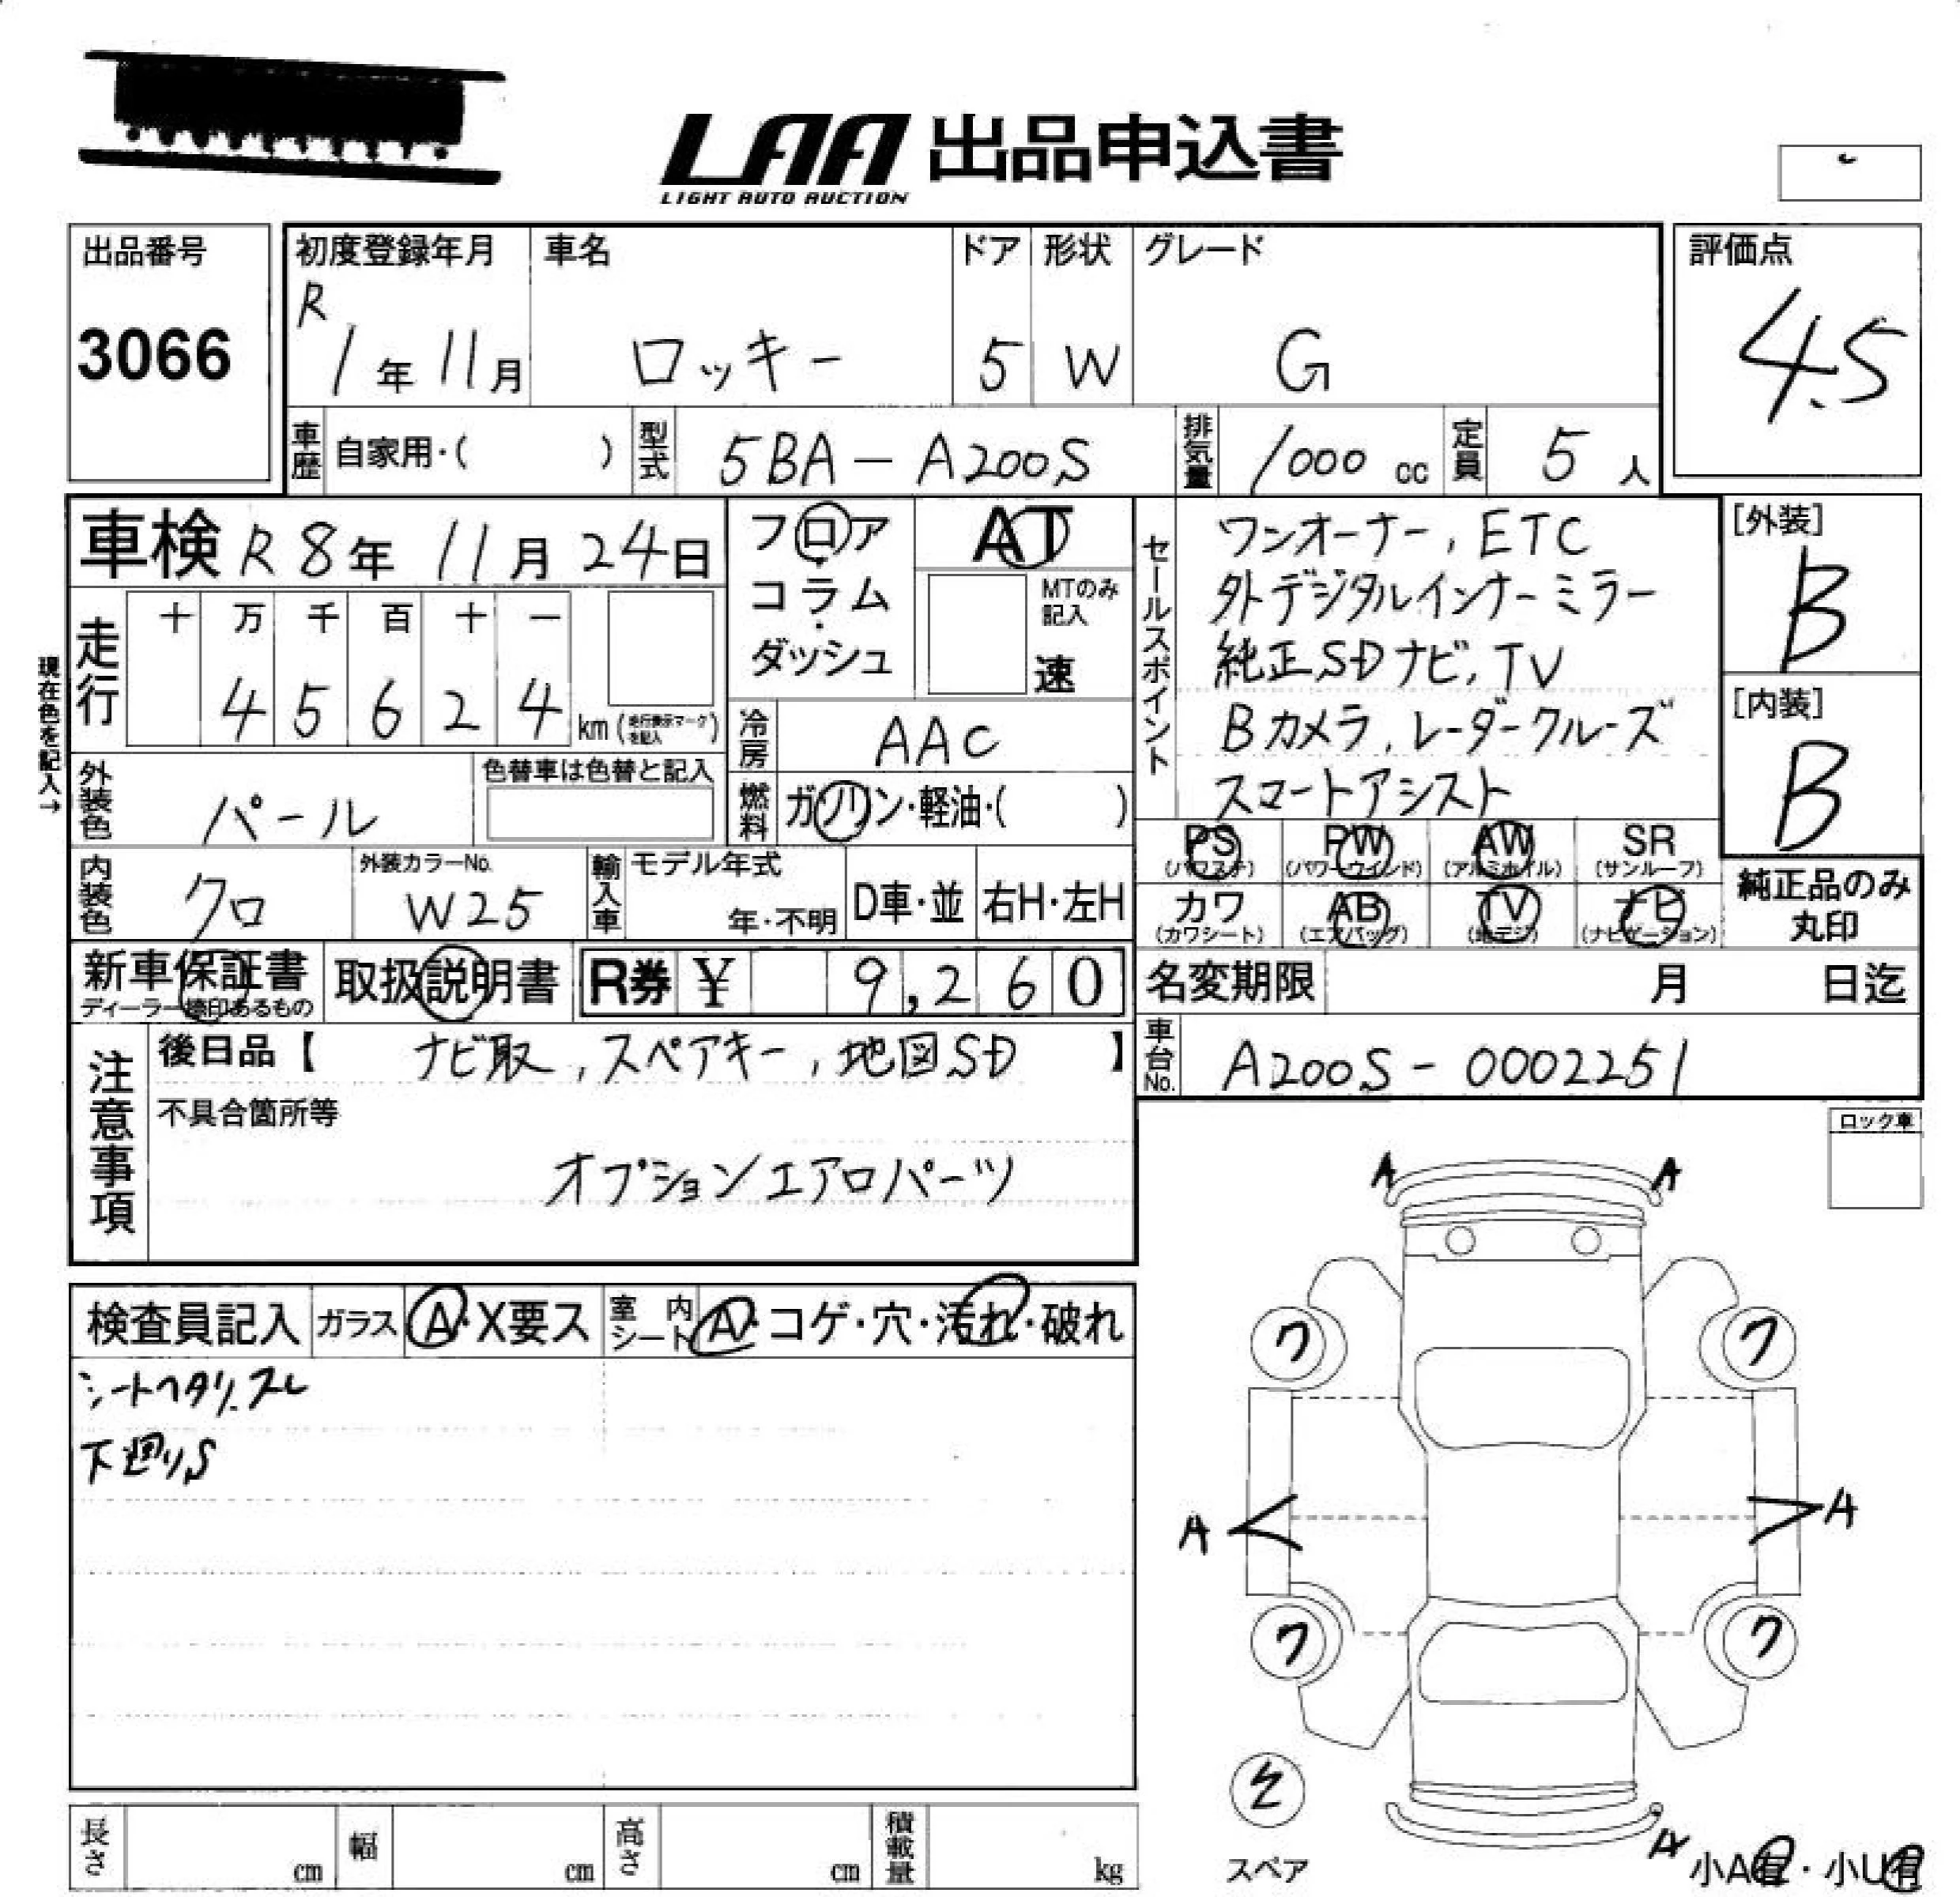 LAA 出品申込書
LIGHT AUTO AUCTION
出品番号
3066
初度登録年月
R 1年 11月
車名
ロッキー
ドア
5
形状
W
グレード
G
評価点
4.5
車歴 自家用・( )
型式 5BA-A200S
排気量 1000 cc
定員 5人
車検 R8年 11月 24日
フロア・コラム・ダッシュ
AT
MTのみ記入
速
セールスポイント
ワンオーナー, ETC
外デジタルインナーミラー
純正SDナビ, TV
Bカメラ, レーダークルーズ
スマートアシスト
[外装]
B
[内装]
B
現在色を記入→
走行
十 万 千 百 十 一
4 5 6 2 4 km (走行表示マークを記入)
冷房 AAC
外装色 パール
色替車は色替と記入
燃料 ガソリン・軽油・( )
PS (パワステ)
PW (パワーウインド)
AW (アルミホイル)
SR (サンルーフ)
カワ (カワシート)
AB (エアバッグ)
TV (地デジ)
ナビ (ナビゲーション)
純正品のみ丸印
内装色 クロ
外装カラーNo. W25
輸入車 モデル年式
年・不明
D車・並
右H・左H
新車保証書
ディーラー捺印あるもの
取扱説明書
R券 ¥ 9,260
名変期限 月 日迄
車台No. A200S-0002251
注意事項
後日品【ナビ取, スペアキー, 地図SD】
不具合箇所等
オプションエアロパーツ
ロック車
検査員記入
ガラス A・X要ス
室内シート A・コゲ・穴・汚れ・破れ
シートヘタリ、スレ
下廻りS
A A
ワ ワ
A A
ワ ワ
スペア
A
小A有・小U有
長さ cm
幅 cm
高さ cm
積載量 kg